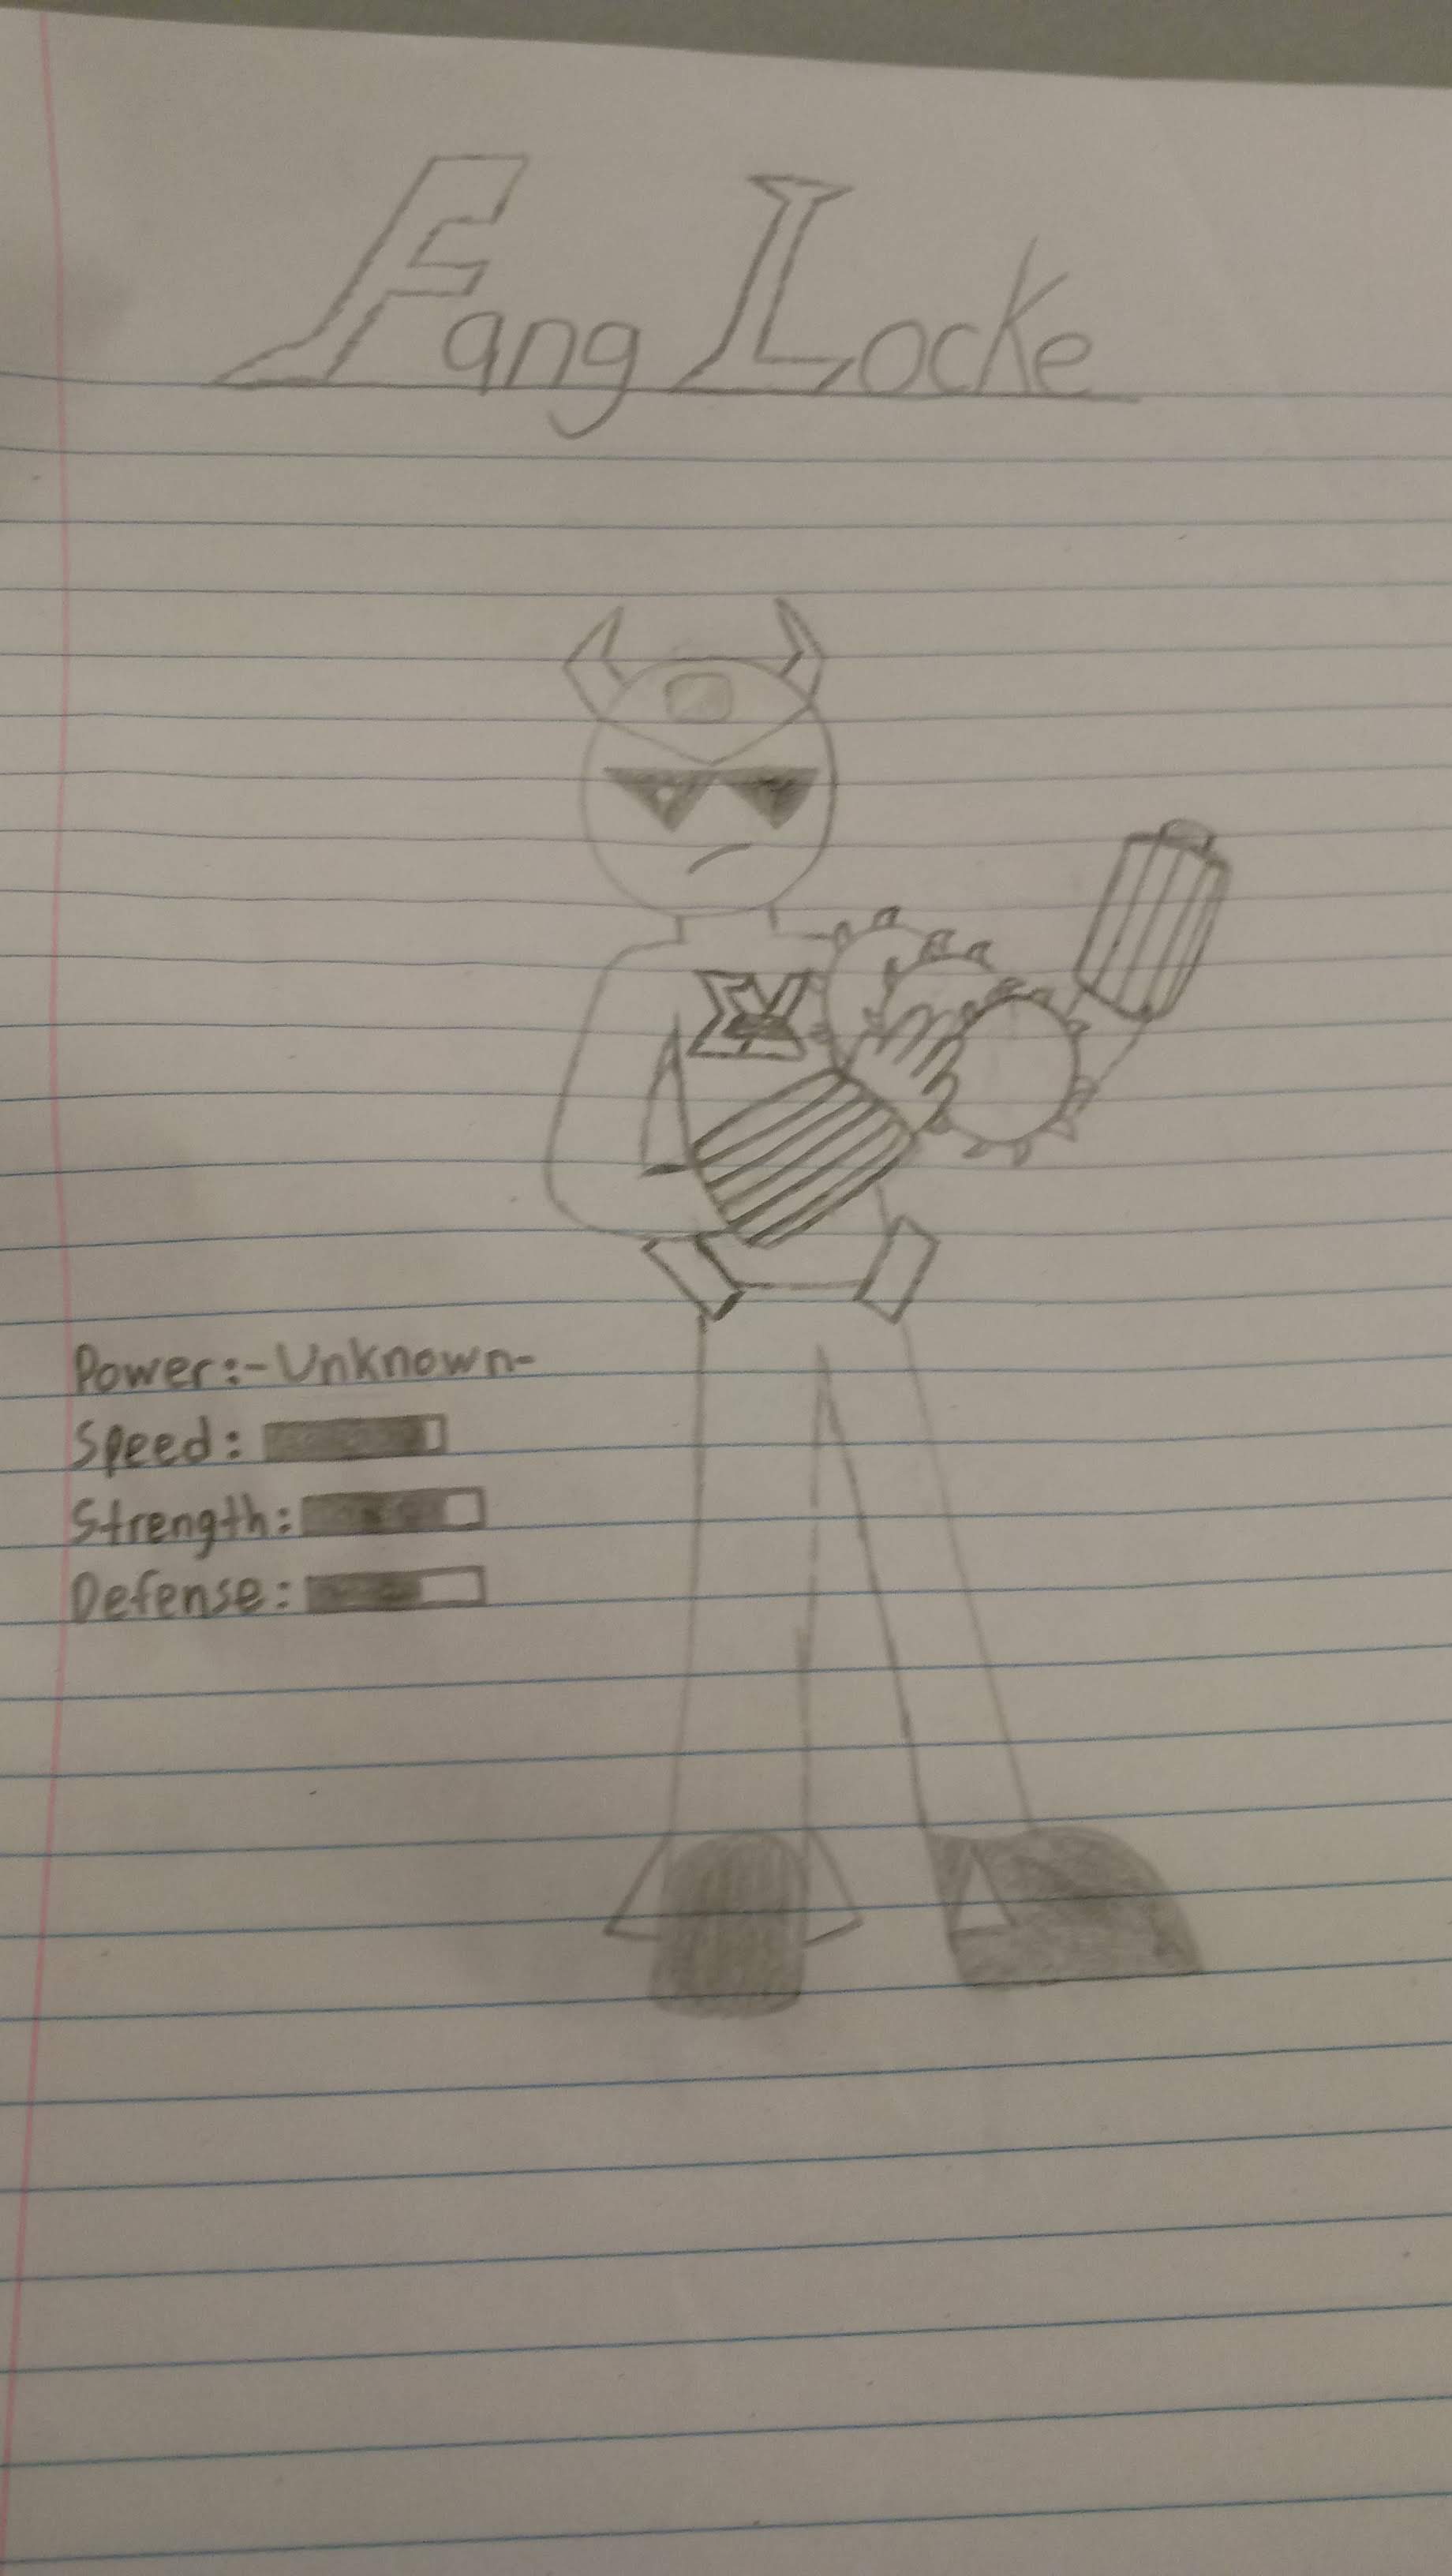 Fang Locke
Power:-Unknown-
Speed:
Strength:
Defense: